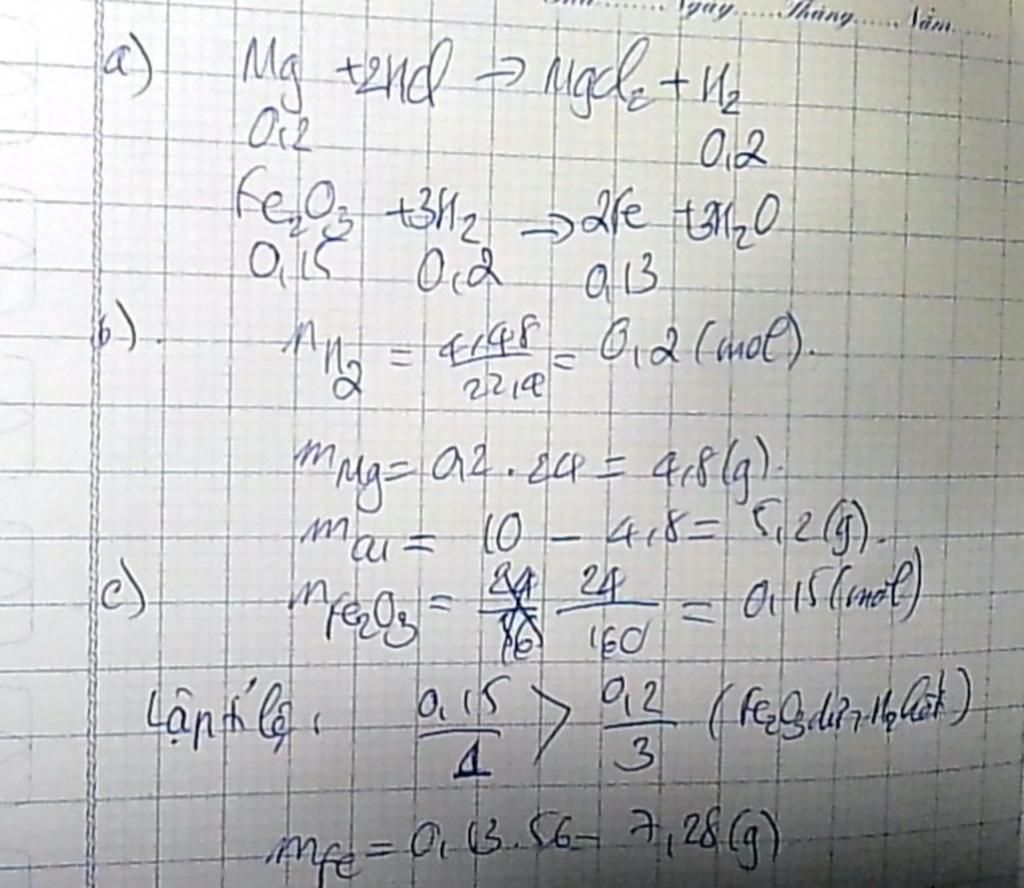 Ngày......Tháng......Năm......
a) Mg + 2HCl → MgCl₂ + H₂
0,2 0,2
Fe₂O₃ + 3H₂ → 2Fe + 3H₂O
0,15 0,2 0,13
b). n H₂ = 4,48/22,4 = 0,2 (mol).
m Mg = 0,2 . 24 = 4,8 (g).
m Cu = 10 - 4,8 = 5,2 (g).
c) n Fe₂O₃ = 24/160 = 0,15 (mol)
Lập tỉ lệ: 0,15/1 > 0,2/3 (Fe₂O₃ dư, H₂ hết)
m Fe = 0,13.56 = 7,28 (g)